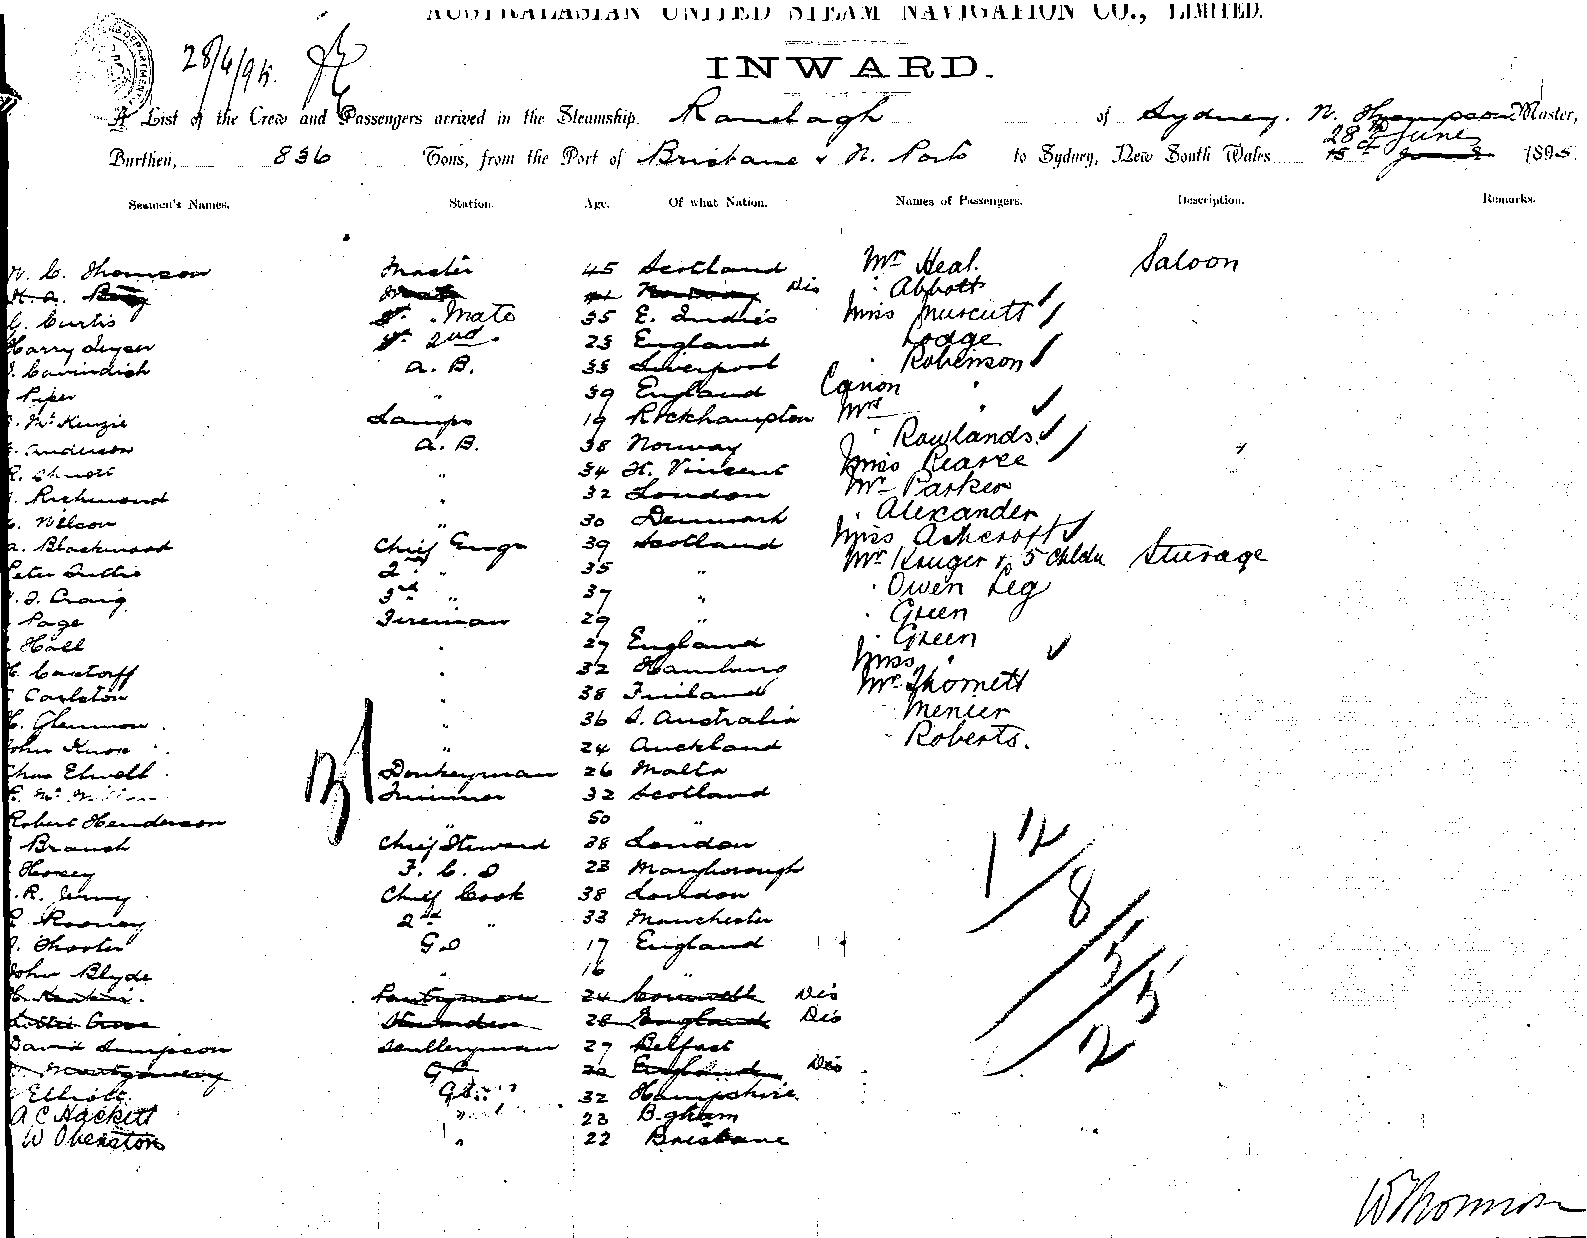 AUSTRALASIAN UNITED STEAM NAVIGATION CO., LIMITED.
28/6/95.
INWARD.
A List of the Crew and Passengers arrived in the Steamship Ranelagh of Sydney. N. Thompson Master,
28th June
Burthen, 836 Tons, from the Port of Brisbane & N. Ports to Sydney, New South Wales 15th June 1895.
Seamen's Names. Station. Age. Of what Nation. Names of Passengers. Description. Remarks.
W. C. Thomson Master 45 Scotland Mr Heal. Saloon
Mate Norway Dis " Abbott
G. Curtis Mate 35 E. Indies Miss Muscutt
Harry 2nd 23 England Lodge
Cavindish A. B. 33 Liverpool " Robinson
Piper " 39 England Canon "
McKenzie Lamps 19 Rockhampton Mrs "
Anderson A. B. 38 Norway " Rowlands
" 34 St. Vincent Miss Pearce
Richmond " 32 London Mr Parker
Nilson " 30 Denmark " Alexander
A. Blackwood Chief Engr 39 Scotland Miss Ashcroft
Peter 2nd " 35 " Mr Kruger & 5 Chldn Sturage
Craig 3rd " 37 " " Owen Leg
Page Fireman 29 " " Green
Hall " 27 England " Green
" 32 Hamburg Miss "
Carlston " 38 Finland Mr Thornett
Glennon " 36 S. Australia Menier
John Knox " 24 Auckland " Roberts.
Chas Elwell Donkeyman 26 Malta
McMillan Trimmer 32 Scotland
Robert Henderson " 50 "
Branch Chief Steward 38 London
F. C. S 23 Maryborough
R. Chief Cook 38 London
Rooney 2nd " 33 Manchester
Shooter G S 17 England
John Blyde " 16 "
Pantryman 24 Cornwall Dis
Stewardess 28 England Dis
David Simpson Sculleryman 27 Belfast
Montgomery G S England Dis
Elliott G S 32 Hampshire
A C Hackett " 23 B.gham
W Overston " 22 Brisbane
12/8/5/5/2
W Thomson